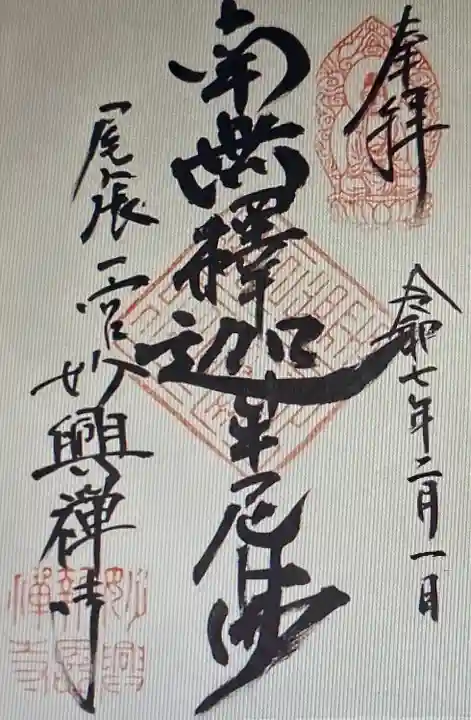 奉拝
令和七年二月一日
南無釋迦牟尼佛
尾張一宮妙興禪寺
妙興
報恩
禪寺